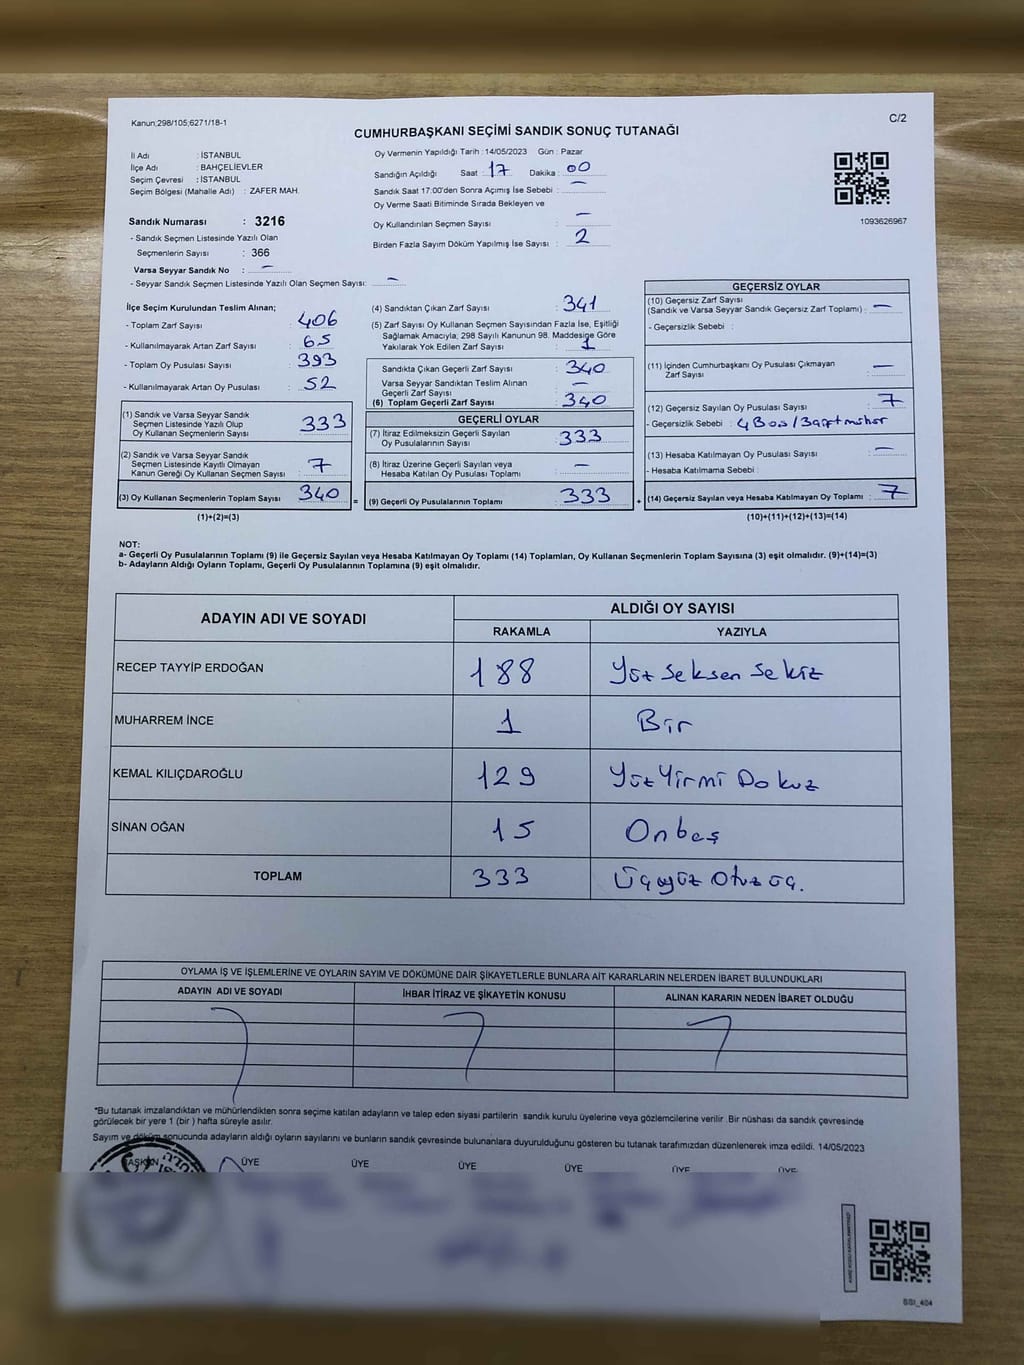 Kanun;298/105;6271/18-1
C/2
CUMHURBAŞKANI SEÇİMİ SANDIK SONUÇ TUTANAĞI
İl Adı : İSTANBUL
İlçe Adı : BAHÇELİEVLER
Seçim Çevresi : İSTANBUL
Seçim Bölgesi (Mahalle Adı) : ZAFER MAH.
Sandık Numarası : 3216
- Sandık Seçmen Listesinde Yazılı Olan
Seçmenlerin Sayısı : 366
Varsa Seyyar Sandık No : -
- Seyyar Sandık Seçmen Listesinde Yazılı Olan Seçmen Sayısı: -
Oy Vermenin Yapıldığı Tarih : 14/05/2023 Gün : Pazar
Sandığın Açıldığı Saat : 17 Dakika : 00
Sandık Saat 17:00'den Sonra Açımış İse Sebebi : -
Oy Verme Saati Bitiminde Sırada Bekleyen ve
Oy Kullandırılan Seçmen Sayısı : -
Birden Fazla Sayım Döküm Yapılmış İse Sayısı : 2
1093626967
İlçe Seçim Kurulundan Teslim Alınan;
- Toplam Zarf Sayısı : 406
- Kullanılmayarak Artan Zarf Sayısı : 65
- Toplam Oy Pusulası Sayısı : 393
- Kullanılmayarak Artan Oy Pusulası : 52
(1) Sandık ve Varsa Seyyar Sandık
Seçmen Listesinde Yazılı Olup
Oy Kullanan Seçmenlerin Sayısı : 333
(2) Sandık ve Varsa Seyyar Sandık
Seçmen Listesinde Kayıtlı Olmayan
Kanun Gereği Oy Kullanan Seçmen Sayısı : 7
(3) Oy Kullanan Seçmenlerin Toplam Sayısı : 340
(1)+(2)=(3)
=
(4) Sandıktan Çıkan Zarf Sayısı : 341
(5) Zarf Sayısı Oy Kullanan Seçmen Sayısından Fazla İse, Eşitliği
Sağlamak Amacıyla; 298 Sayılı Kanunun 98. Maddesine Göre
Yakılarak Yok Edilen Zarf Sayısı : 1
Sandıkta Çıkan Geçerli Zarf Sayısı : 340
Varsa Seyyar Sandıktan Teslim Alınan
Geçerli Zarf Sayısı : -
(6) Toplam Geçerli Zarf Sayısı : 340
GEÇERLİ OYLAR
(7) İtiraz Edilmeksizin Geçerli Sayılan
Oy Pusulalarının Sayısı : 333
(8) İtiraz Üzerine Geçerli Sayılan veya
Hesaba Katılan Oy Pusulası Toplamı : -
(9) Geçerli Oy Pusulalarının Toplamı : 333
+
GEÇERSİZ OYLAR
(10) Geçersiz Zarf Sayısı
(Sandık ve Varsa Seyyar Sandık Geçersiz Zarf Toplamı) : -
- Geçersizlik Sebebi :
(11) İçinden Cumhurbaşkanı Oy Pusulası Çıkmayan
Zarf Sayısı : -
(12) Geçersiz Sayılan Oy Pusulası Sayısı : 7
- Geçersizlik Sebebi : 4 Boş/3
(13) Hesaba Katılmayan Oy Pusulası Sayısı : -
- Hesaba Katılmama Sebebi :
(14) Geçersiz Sayılan veya Hesaba Katılmayan Oy Toplamı : 7
(10)+(11)+(12)+(13)=(14)
NOT:
a- Geçerli Oy Pusulalarının Toplamı (9) ile Geçersiz Sayılan veya Hesaba Katılmayan Oy Toplamı (14) Toplamları, Oy Kullanan Seçmenlerin Toplam Sayısına (3) eşit olmalıdır. (9)+(14)=(3)
b- Adayların Aldığı Oyların Toplamı, Geçerli Oy Pusulalarının Toplamına (9) eşit olmalıdır.
ADAYIN ADI VE SOYADI
ALDIĞI OY SAYISI
RAKAMLA YAZIYLA
RECEP TAYYİP ERDOĞAN 188 Yüz Seksen Sekiz
MUHARREM İNCE 1 Bir
KEMAL KILIÇDAROĞLU 129 Yüz Yirmi Dokuz
SİNAN OĞAN 15 Onbeş
TOPLAM 333 Üçyüz Otuz üç.
OYLAMA İŞ VE İŞLEMLERİNE VE OYLARIN SAYIM VE DÖKÜMÜNE DAİR ŞİKAYETLERLE BUNLARA AİT KARARLARIN NELERDEN İBARET BULUNDUKLARI
ADAYIN ADI VE SOYADI İHBAR İTİRAZ VE ŞİKAYETİN KONUSU ALINAN KARARIN NEDEN İBARET OLDUĞU
"Bu tutanak imzalandıktan ve mühürlendikten sonra seçime katılan adayların ve talep eden siyasi partilerin sandık kurulu üyelerine veya gözlemcilerine verilir. Bir nüshası da sandık çevresinde
görülecek bir yere 1 (bir) hafta süreyle asılır.
Sayım ve döküm sonucunda adayların aldığı oyların sayılarını ve bunların sandık çevresinde bulunanlara duyurulduğunu gösteren bu tutanak tarafımızdan düzenlenerek imza edildi. 14/05/2023
BAŞKAN ÜYE ÜYE ÜYE ÜYE ÜYE ÜYE
SSI_404